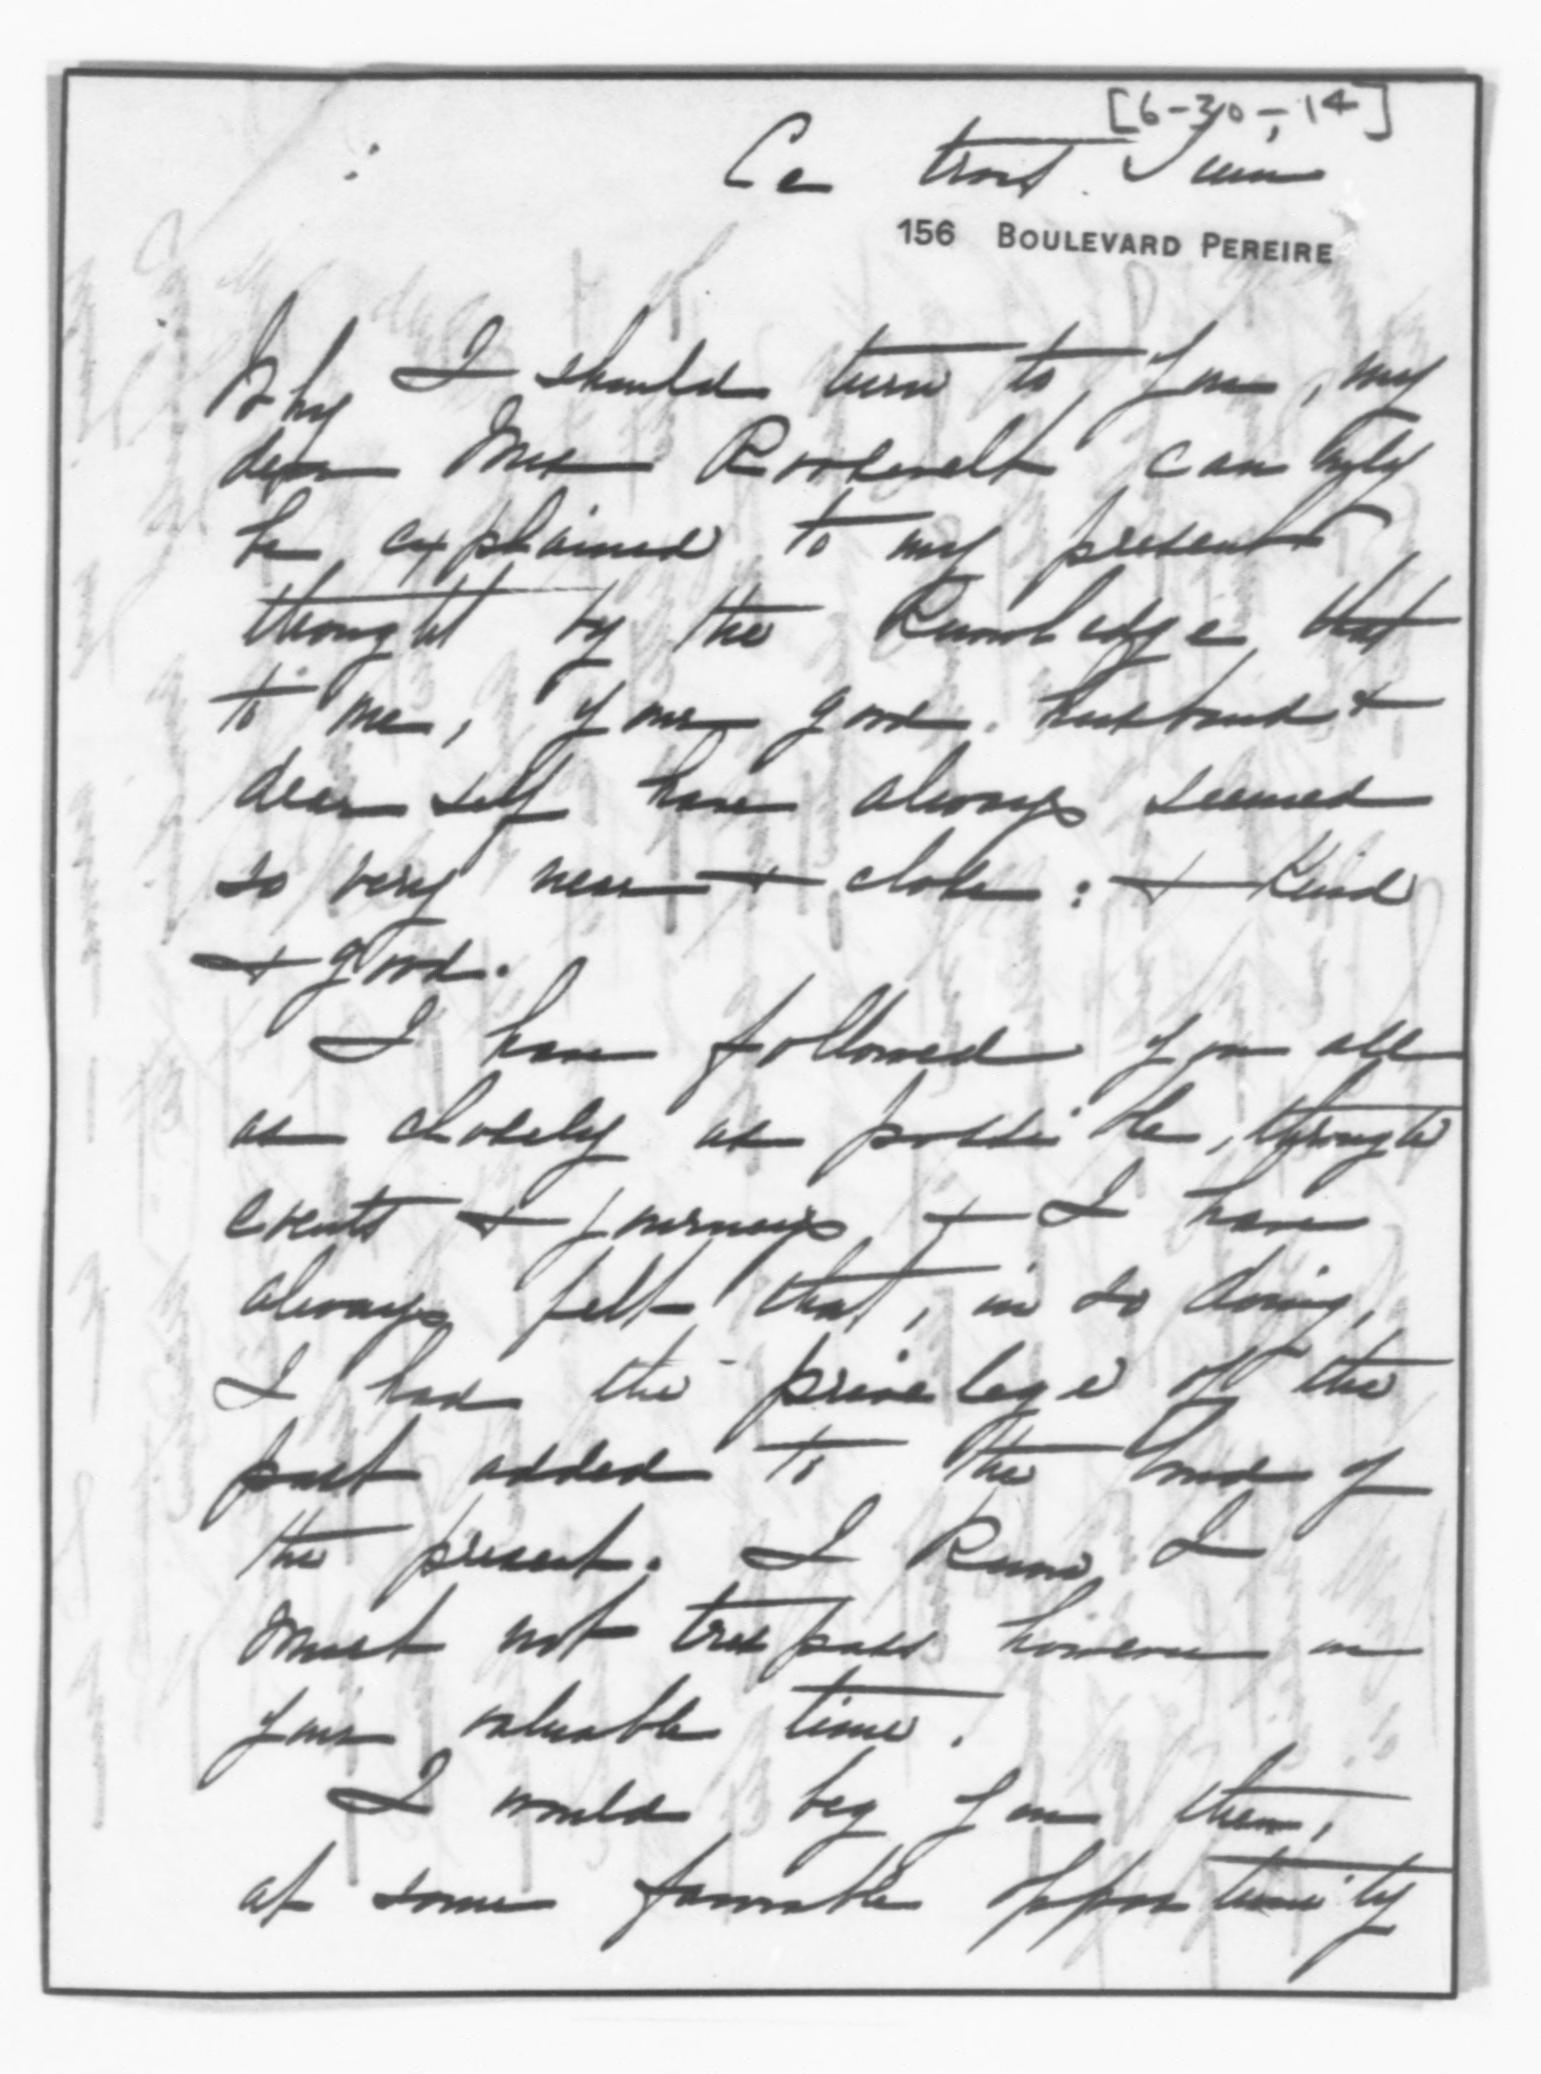 [6-30-14]
Ce Juin
156 BOULEVARD PEREIRE
Why I should turn to you, my
dear Mrs Roosevelt can only
be explained to my present
thought by the Knowledge that
to me, your good husband &
dear self have always seemed
so very near & close: & Kind
& good.
I have followed you all
as closely as possible, through
events & journeys & I have
always felt that, in so doing,
I had the privelege of the
past added to the of
the present. I Know I
must not trespass however on
your valuable time.
I would beg you then,
at some favorable opportunity